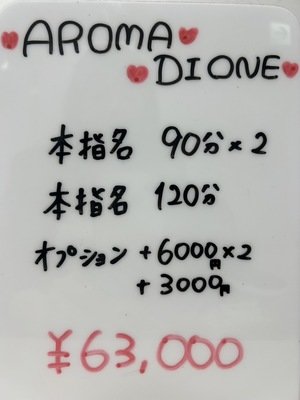 AROMA
DIONE
本指名 90分×2
本指名 120分
オプション +6000円×2
+3000円
¥63,000